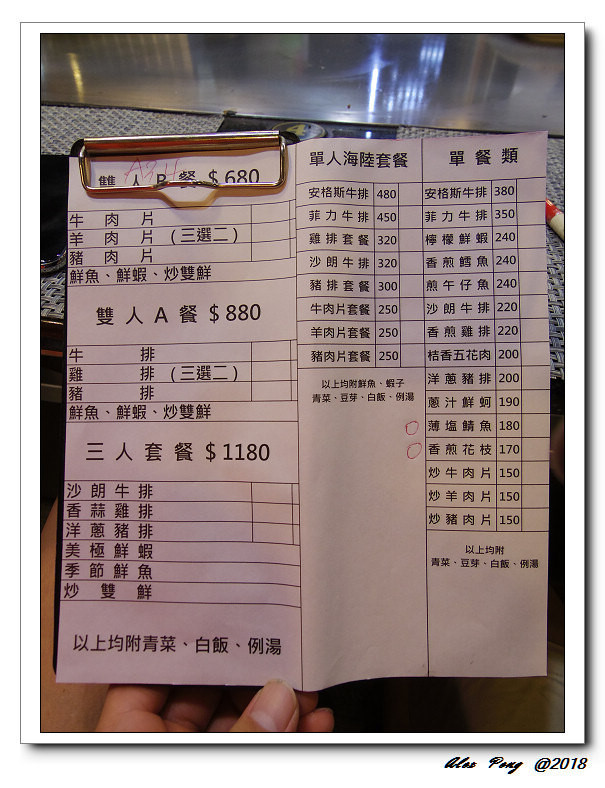 雙人B餐 $680
牛肉片
羊肉片（三選二）
豬肉片
鮮魚、鮮蝦、炒雙鮮
雙人A餐 $880
牛排
雞排（三選二）
豬排
鮮魚、鮮蝦、炒雙鮮
三人套餐 $1180
沙朗牛排
香蒜雞排
洋蔥豬排
美極鮮蝦
季節鮮魚
炒雙鮮
以上均附青菜、白飯、例湯
單人海陸套餐
安格斯牛排 480
菲力牛排 450
雞排套餐 320
沙朗牛排 320
豬排套餐 300
牛肉片套餐 250
羊肉片套餐 250
豬肉片套餐 250
以上均附鮮魚、蝦子
青菜、豆芽、白飯、例湯
單餐類
安格斯牛排 380
菲力牛排 350
檸檬鮮蝦 240
香煎鱈魚 240
煎午仔魚 240
沙朗牛排 220
香煎雞排 220
桔香五花肉 200
洋蔥豬排 200
蔥汁鮮蚵 190
薄塩鯖魚 180
香煎花枝 170
炒牛肉片 150
炒羊肉片 150
炒豬肉片 150
以上均附
青菜、豆芽、白飯、例湯
Alex Pong @2018